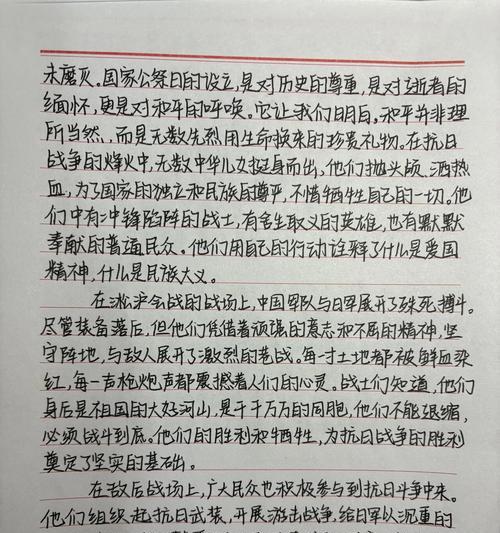 未磨灭。国家公祭日的设立，是对历史的尊重，是对逝者的
缅怀，更是对和平的呼唤。它让我们明白，和平并非理
所当然，而是无数先烈用生命换来的珍贵礼物。在抗日
战争的烽火中，无数中华儿女挺身而出，他们抛头颅、洒热
血，为了国家的独立和民族的尊严，不惜牺牲自己的一切。他
们中有冲锋陷阵的战士，有舍生取义的英雄，也有默默
奉献的普通民众。他们用自己的行动诠释了什么是爱国
精神，什么是民族大义。
在淞沪会战的战场上，中国军队与日军展开了殊死搏斗。
尽管装备落后，但他们凭借着顽强的意志和不屈的精神，坚
守阵地，与敌人展开了激烈的巷战。每一寸土地都被鲜血染
红，每一声枪炮声都震撼着人们的心灵。战士们知道，他们
身后是祖国的大好河山，是千千万万的同胞，他们不能退缩，
必须战斗到底。他们的胜利和牺牲，为抗日战争的胜利
奠定了坚实的基础。
在敌后战场上，广大民众也积极参与到抗日斗争中来。
他们组织起抗日武装，开展游击战争，给日军以沉重的